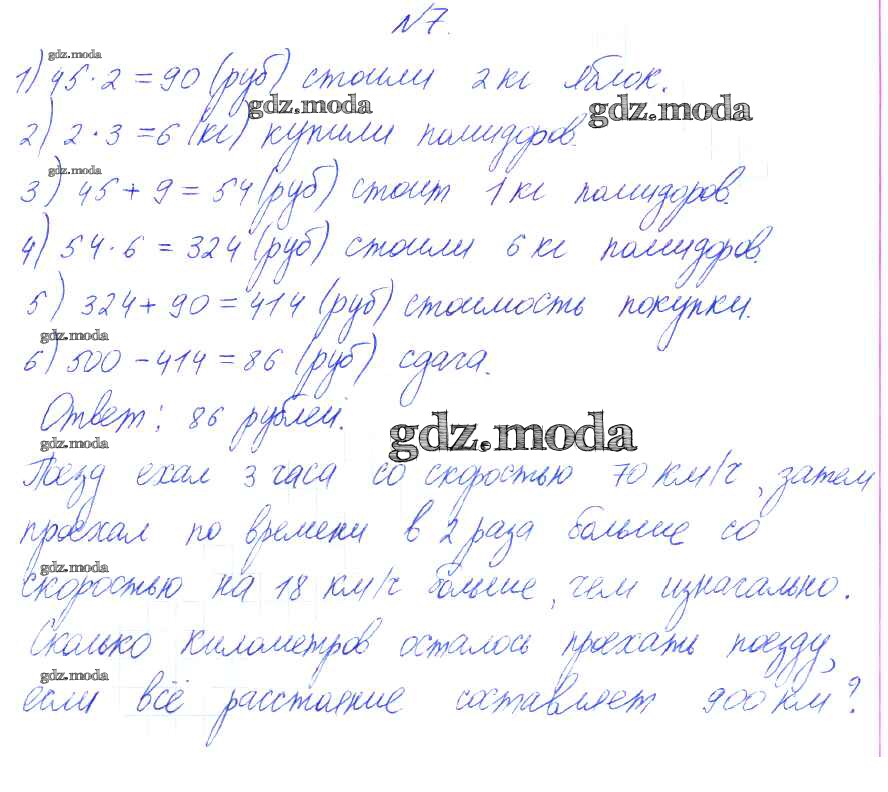 №7.
gdz.moda
1) 45·2=90 (руб) стоили 2кг яблок.
gdz.moda gdz.moda
2) 2·3=6 (кг) купили помидоров.
gdz.moda
3) 45+9=54 (руб) стоит 1кг помидоров.
4) 54·6=324 (руб) стоили 6кг помидоров.
5) 324+90=414 (руб) стоимость покупки.
gdz.moda
6) 500-414=86 (руб) сдача.
Ответ: 86 рублей.
gdz.moda gdz.moda
Поезд ехал 3 часа со скоростью 70 км/ч, затем
проехал по времени в 2 раза больше со
gdz.moda
скоростью на 18 км/ч больше, чем изначально.
Сколько километров осталось проехать поезду,
gdz.moda
если всё расстояние составляет 900км?